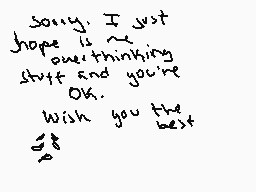 sorry. I just
hope is me
overthinking
stuff and you're
OK.
Wish you the
best